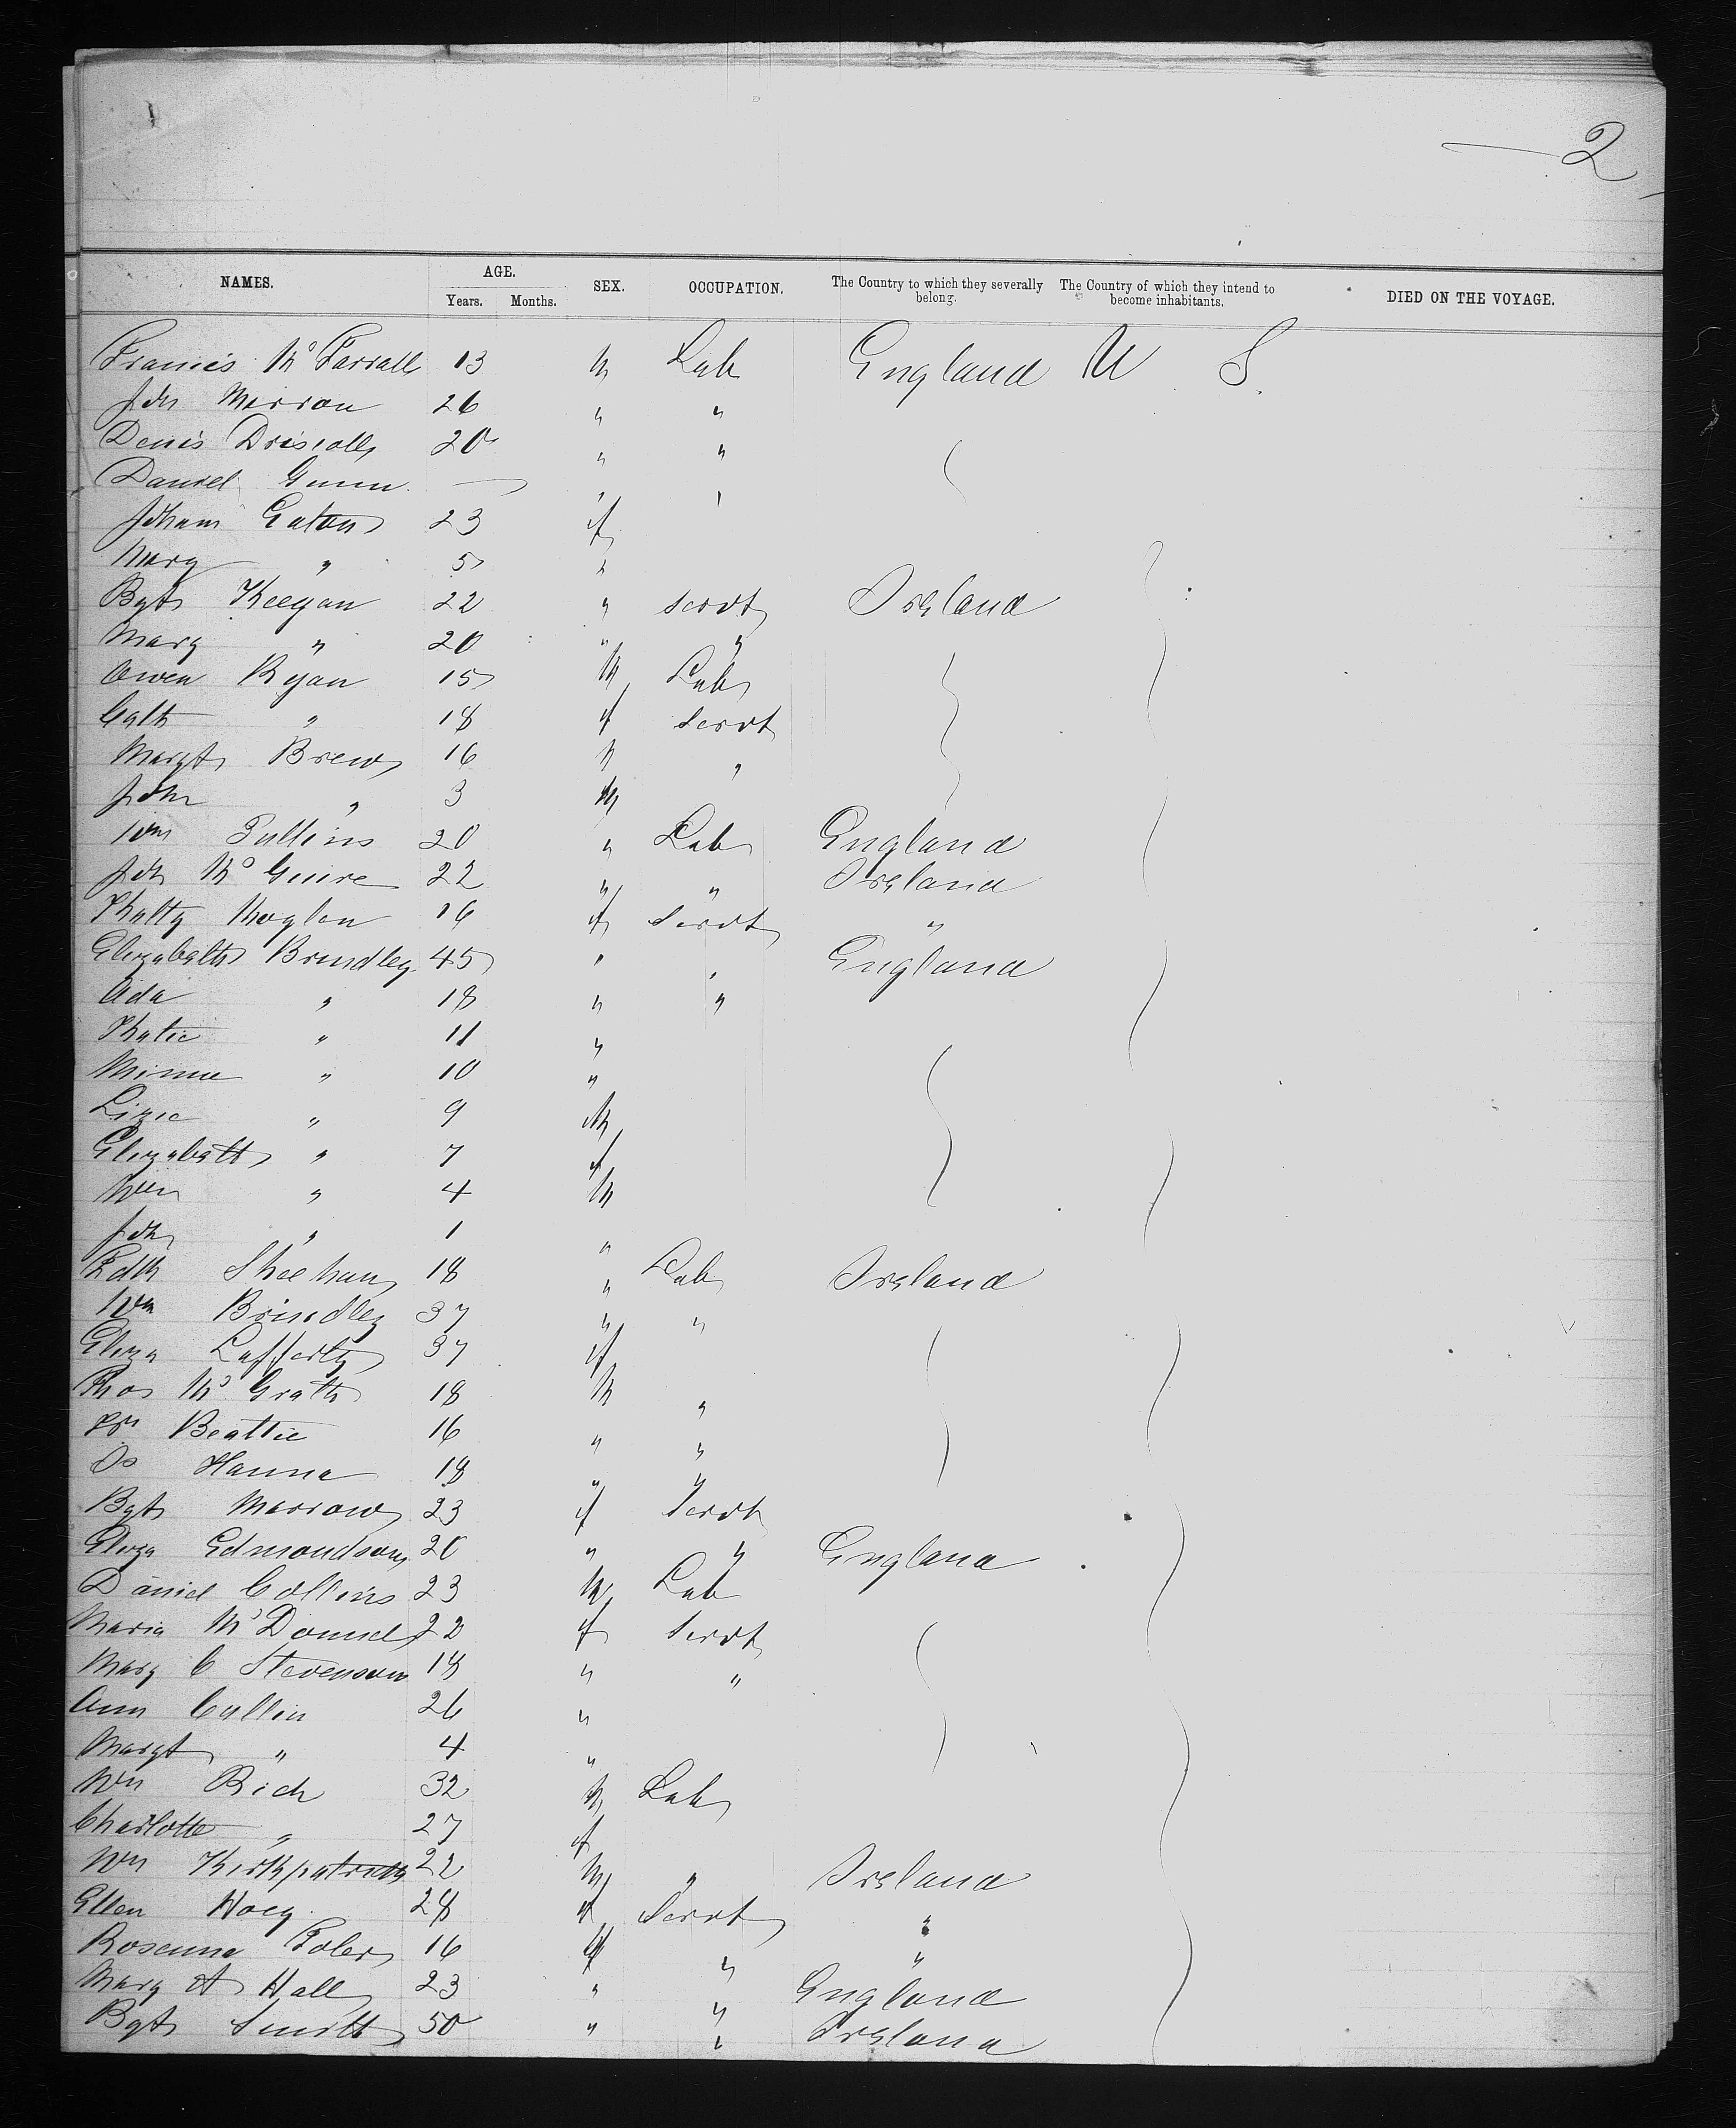 2
NAMES. AGE. Years. Months. SEX. OCCUPATION. The Country to which they severally belong. The Country of which they intend to become inhabitants. DIED ON THE VOYAGE.
Francis Mc Farrall 13 M Lab England U S
Jdn 26 " "
Denis Driscoll 20 " "
Daniel Gunn — " "
Eaton 23 f
Mary " 5 "
Bgt Keegan 22 " Servt Ireland
Mary " 20 " "
Owen Ryan 15 M Lab
Cath " 18 f Servt
Margt Brew 16 " "
John " 3 M
Wm Pullins 20 " Lab England
Jdn Mc Guire 22 " " Ireland
Katty 16 f Servt "
Elizabeth Brindley 45 " " England
Ada " 18 " "
Katie " 11 "
Minnie " 10 "
Lizie " 9 M
Elizabeth " 7 f
Wm " 4 M
Jdn " 1 "
Edth Sheehan 18 " Lab Ireland
Wm Brindley 37 " "
Eliza Lafferty 37 f
Thos Mc Grath 18 M "
Beattie 16 " "
Do Hanna 18 " "
Bgt Marrow 23 f Servt
Eliza Edmondson 20 " " England
Daniel Collins 23 M Lab
Maria Mc Donnel 22 f Servt
Mary C Stevenson 18 " "
Ann Cullin 26 "
Margt " 4 "
Wm Rich 32 M Lab
Charlotte " 27 f
Wm Kirkpatrick 22 M " Ireland
Ellen Hoey 28 f Servt "
Rosanna 16 f " "
Mary A Hall 23 " " England
Bgt Smith 50 " " Ireland